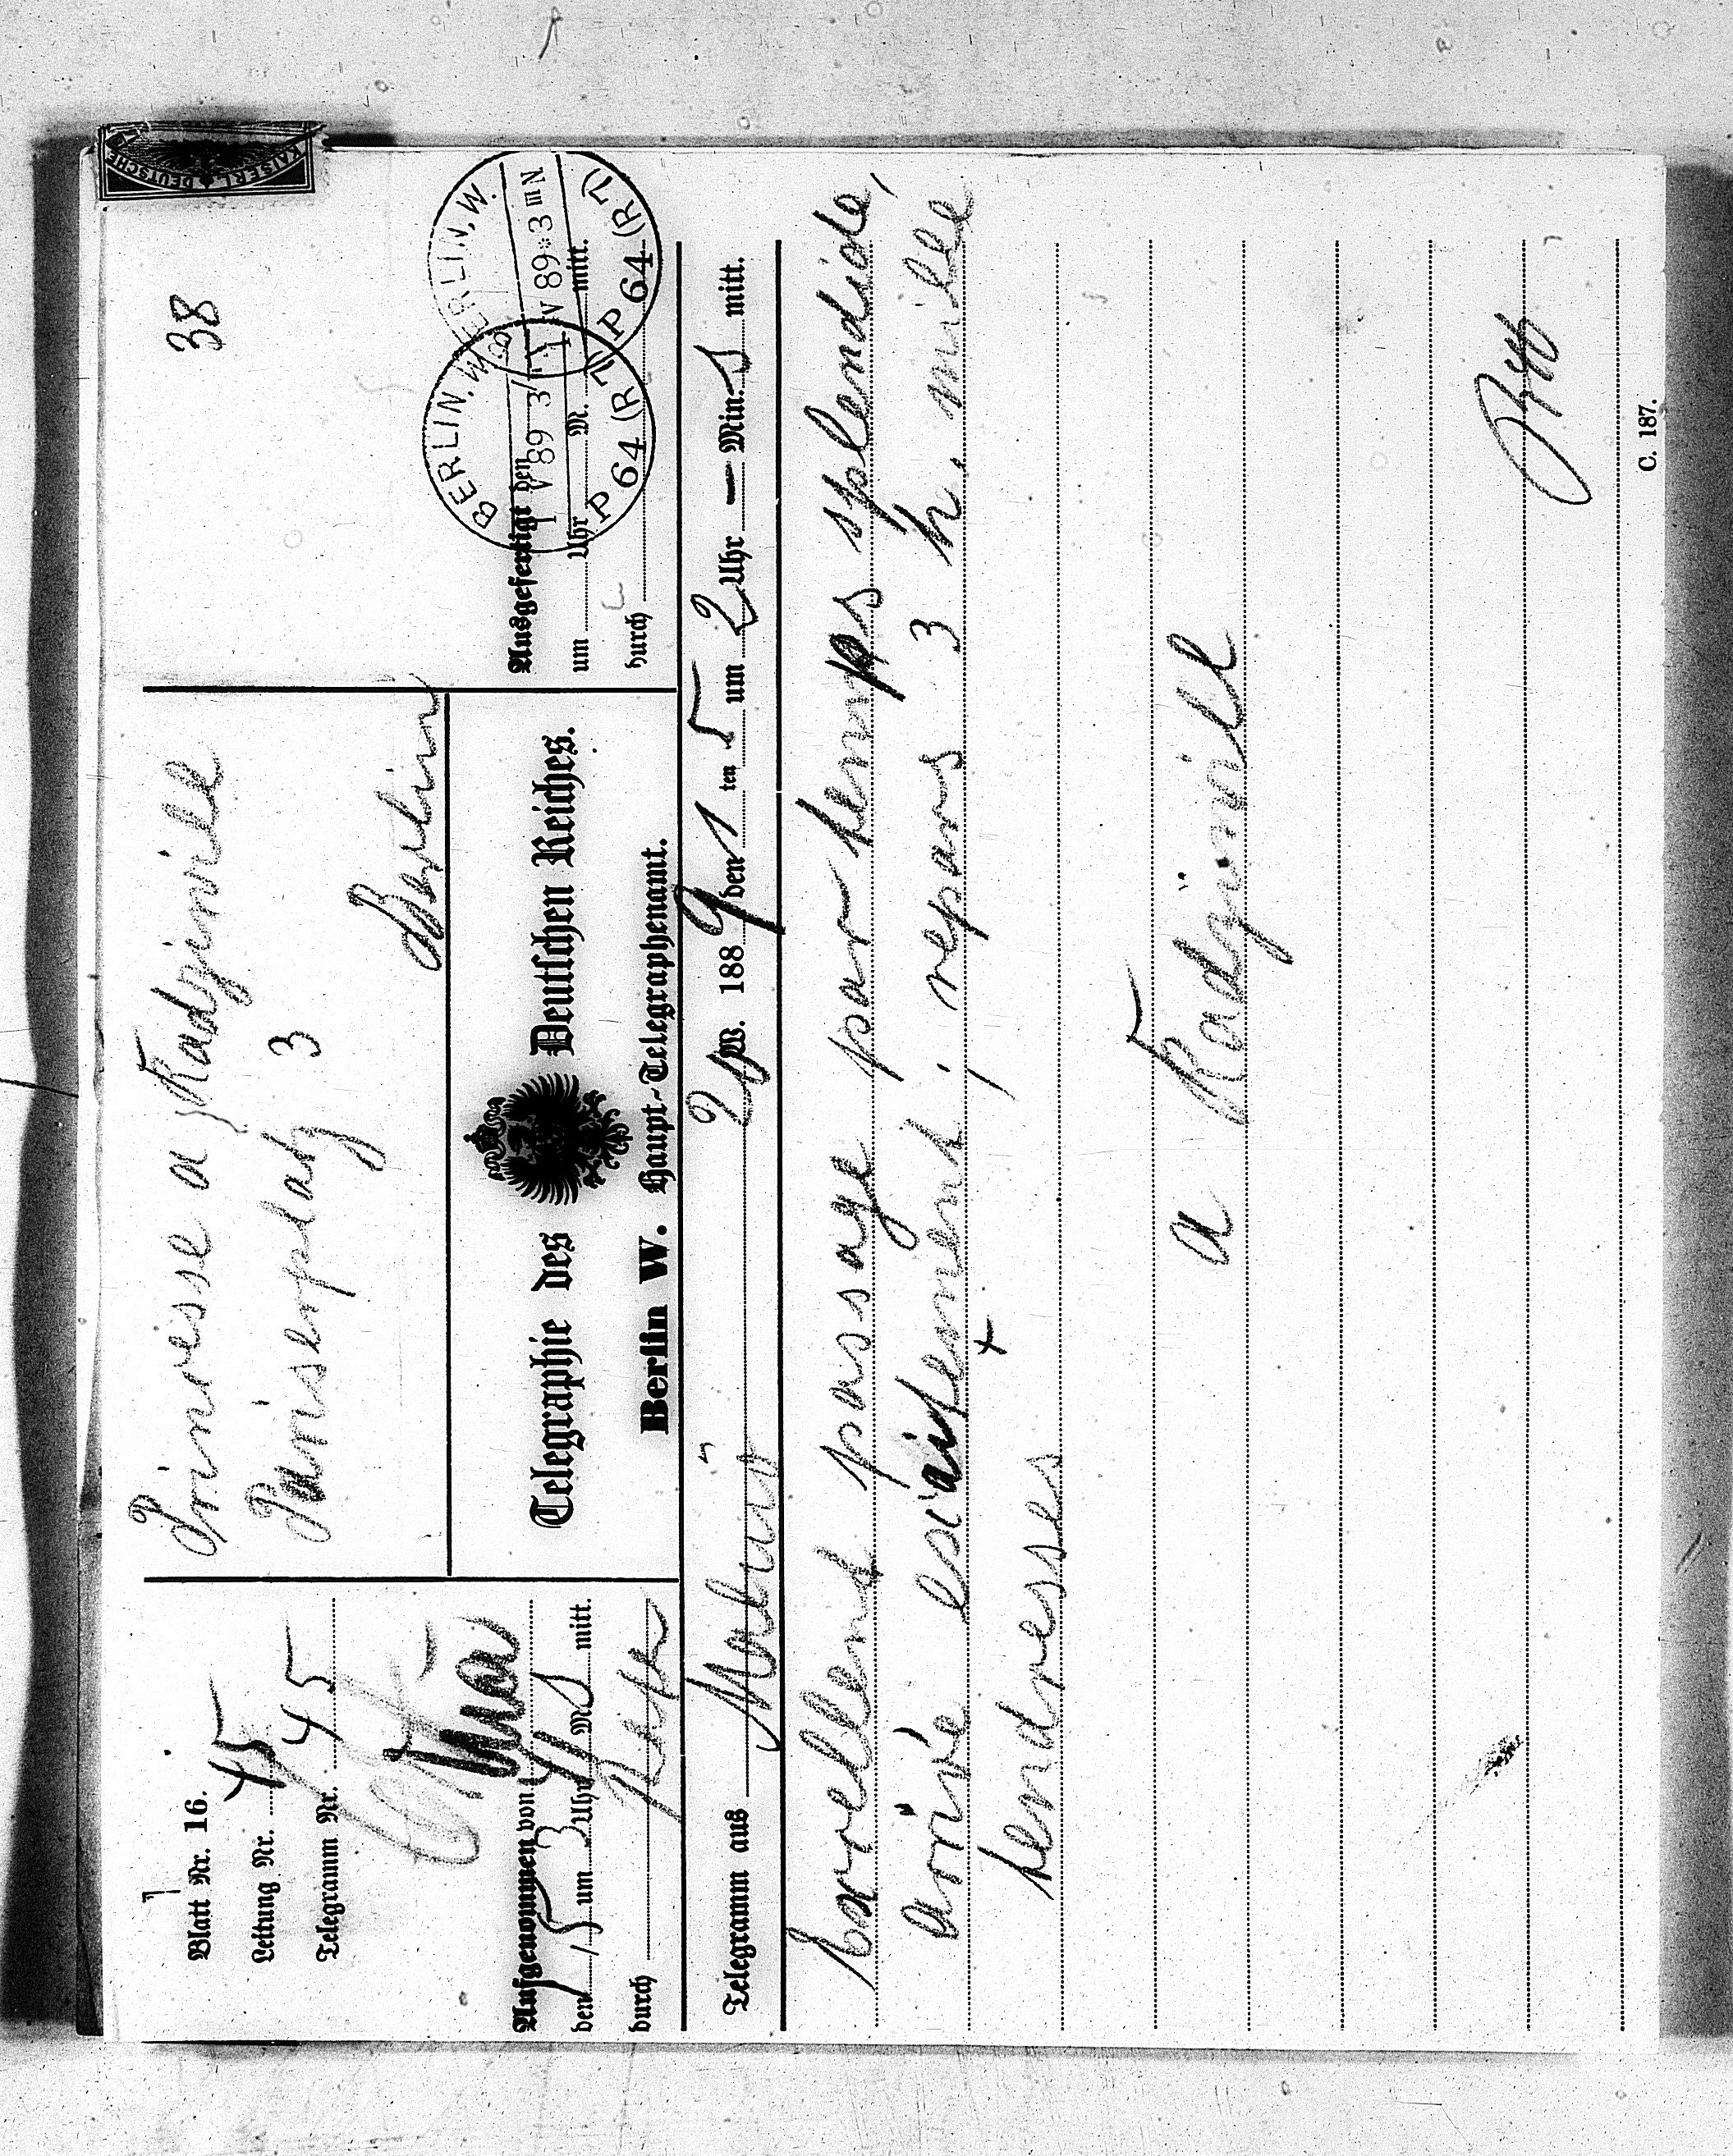 38
Blatt Nr. 16.
Leitung Nr. 45
Telegramm Nr. 45
Aufgenommen von
den 1/5 um 3 Uhr 11 M. S mitt.
durch
Prinvesse a Radziwill
Pariserplatz 3
Berlin
Telegraphie des Deutschen Reiches.
Berlin W. Haupt-Telegraphenamt.
Ausgefertigt den
um Uhr M. mitt.
durch
BERLIN, W.
1/V 89 3
P 64 (R 7)
BERLIN, W.
1/V 89*3 N
P 64 (R 7)
KAISERL. DEUTSCHE
Telegramm aus W. 1889 den 1 ten 5 um 2 Uhr — Min. S mitt.
Exvellent passage par temps splendide,
arrivé esaitement, repars 3 h. mille
tendresses +
a Radziwill
C. 187.